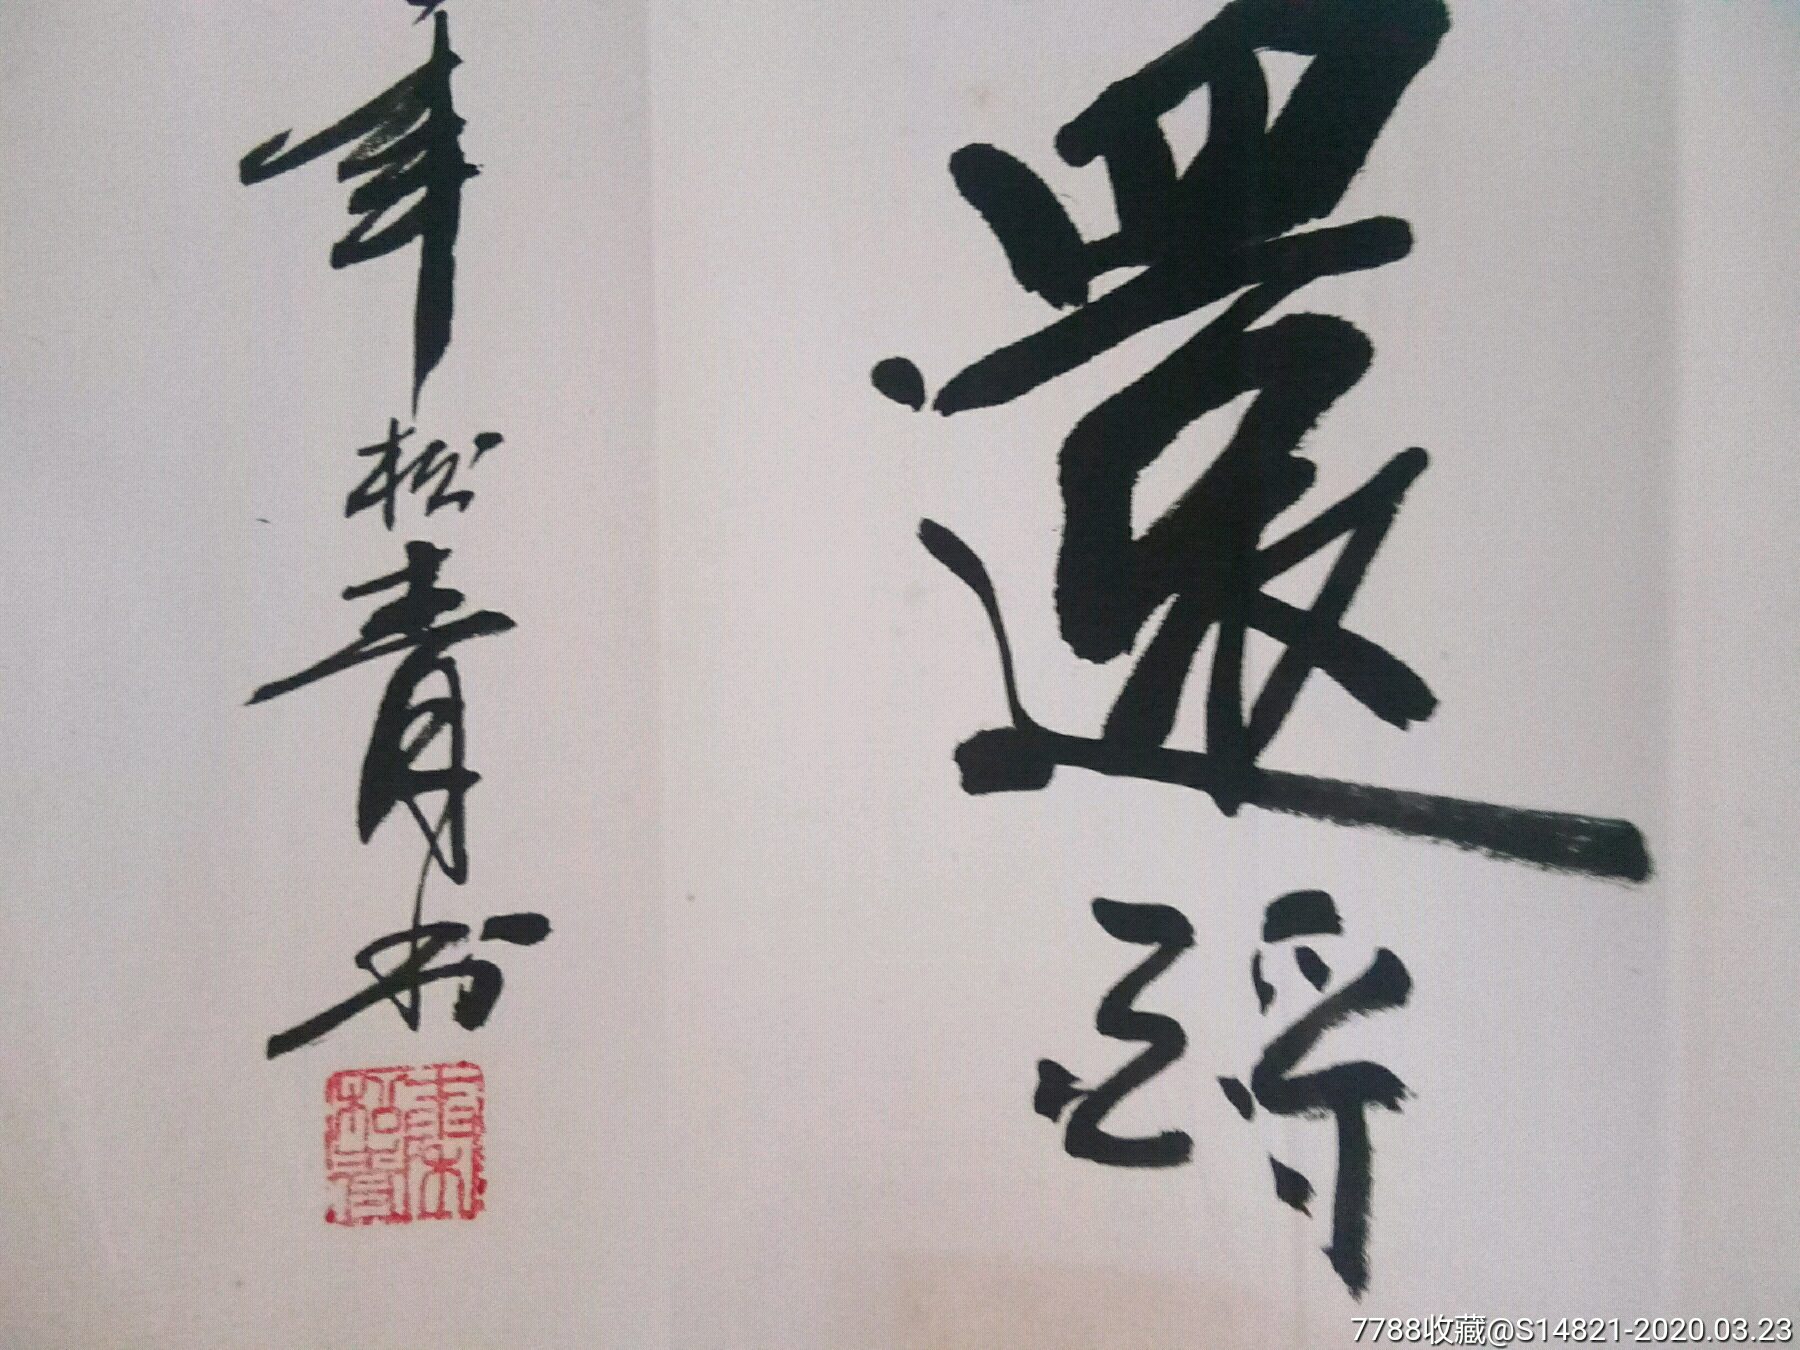 還酹
年松青书
秦松青
7788收藏@S14821-2020.03.23